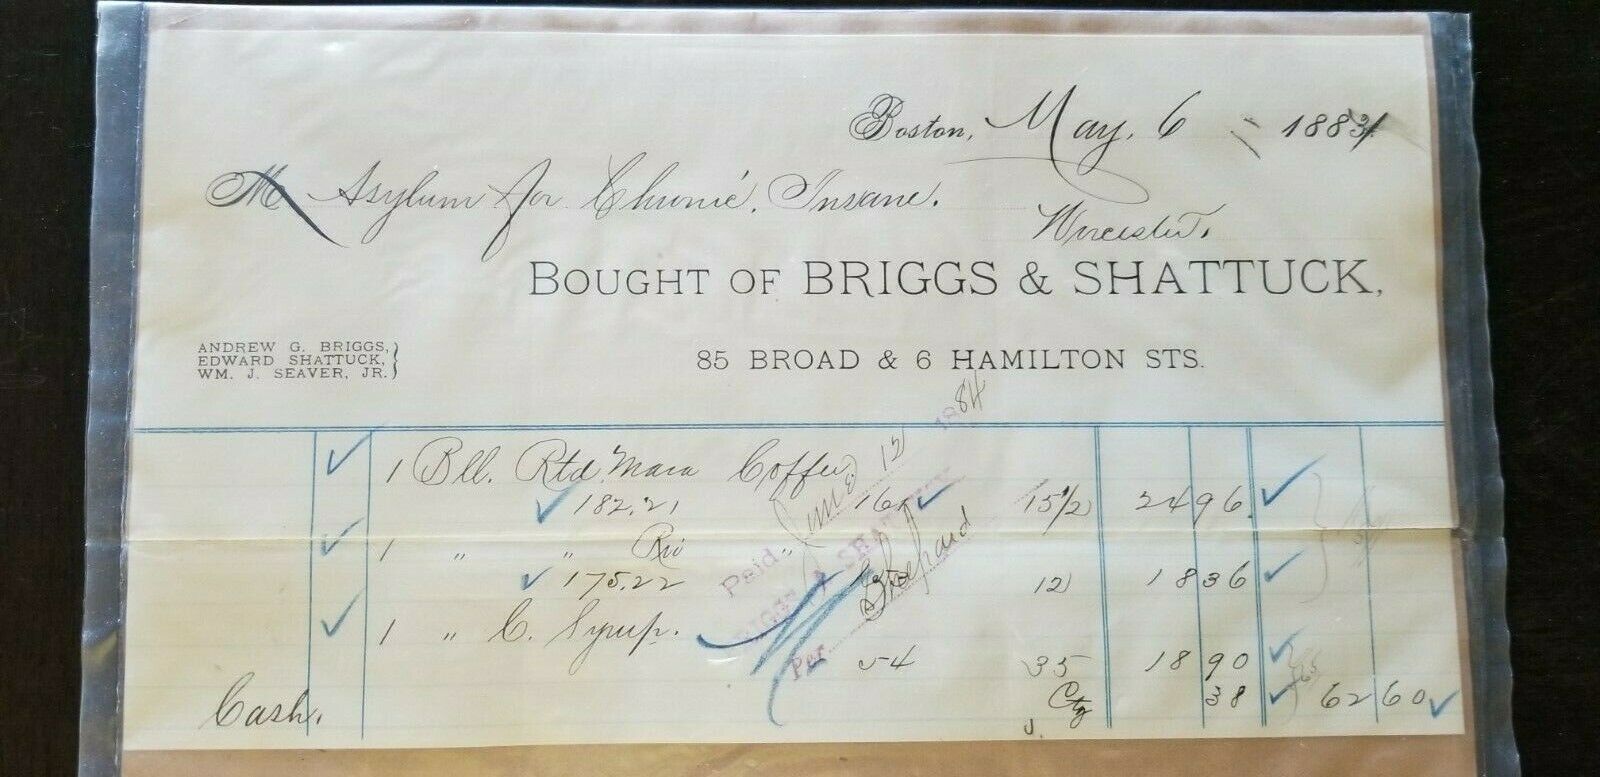 Boston, May, 6 1884
M Asylum for Chronic, Insane.
Worcester.
BOUGHT OF BRIGGS & SHATTUCK,
ANDREW G. BRIGGS,
EDWARD SHATTUCK,
WM. J. SEAVER, JR.
85 BROAD & 6 HAMILTON STS.
1 Bll. Rtd. Mara Coffee
182.21 161 15 1/2 24 96
1 " " Rio "
175.22 153 12 18 36
1 " C. Syrup.
54 35 18 90
Cash. Ctg 38 62 60
Paid June 12 1884
BRIGGS & SHATTUCK
Per Shepard